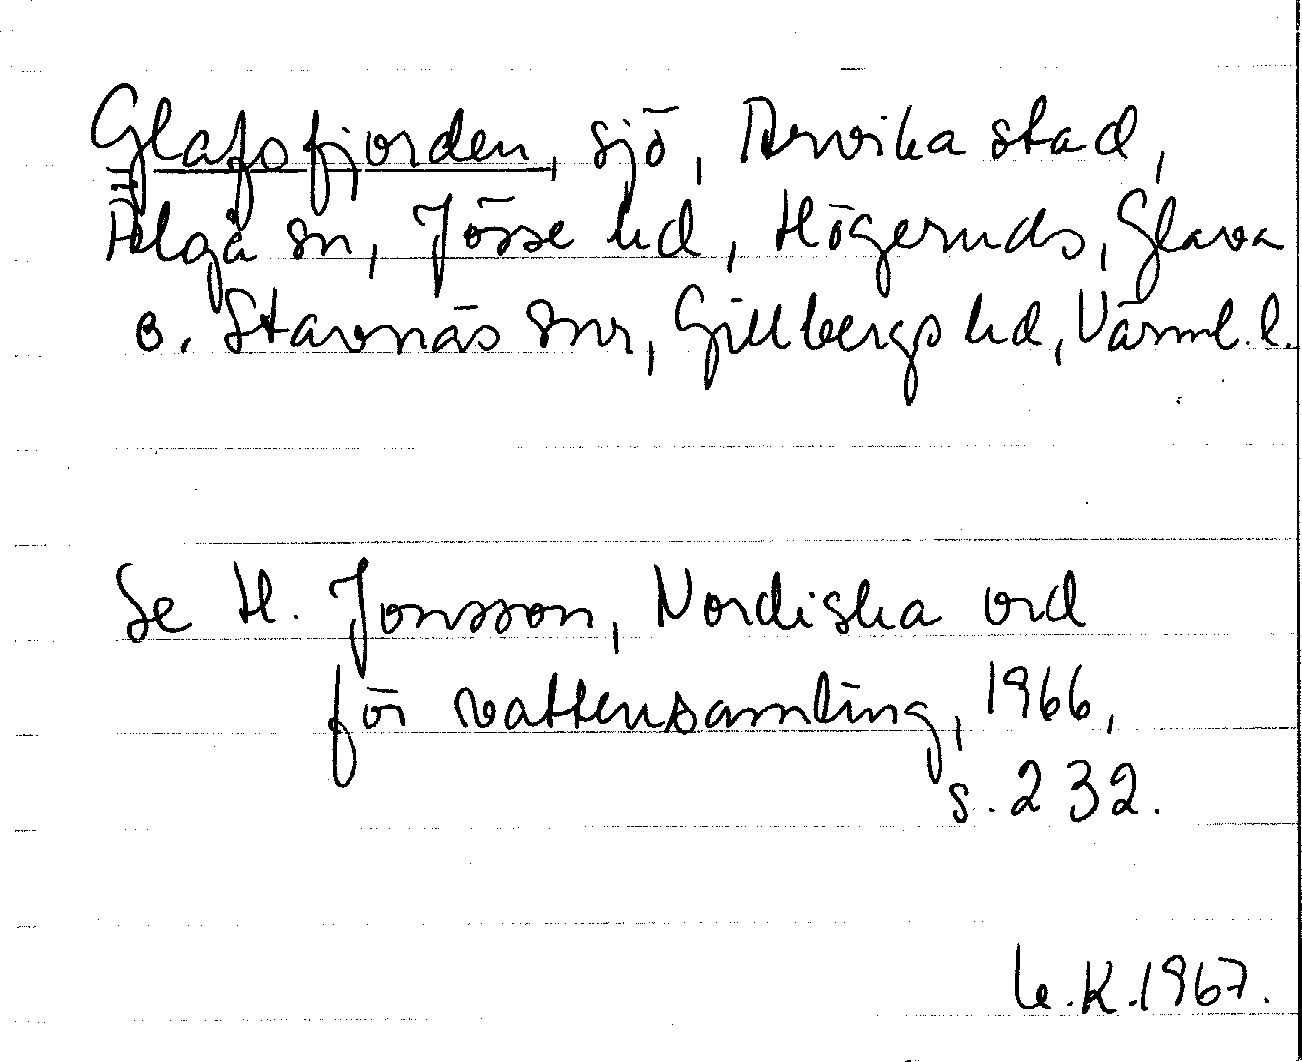 Glafsfjorden, sjö, Arvika stad,
Älgå sn, Jösse hd, Högeruds, Glava
o. Stavnäs snr, Gillbergs hd, Värml. l.
Se H. Jonsson, Nordiska ord
för vattensamling, 1966,
s. 232.
K. 1967.